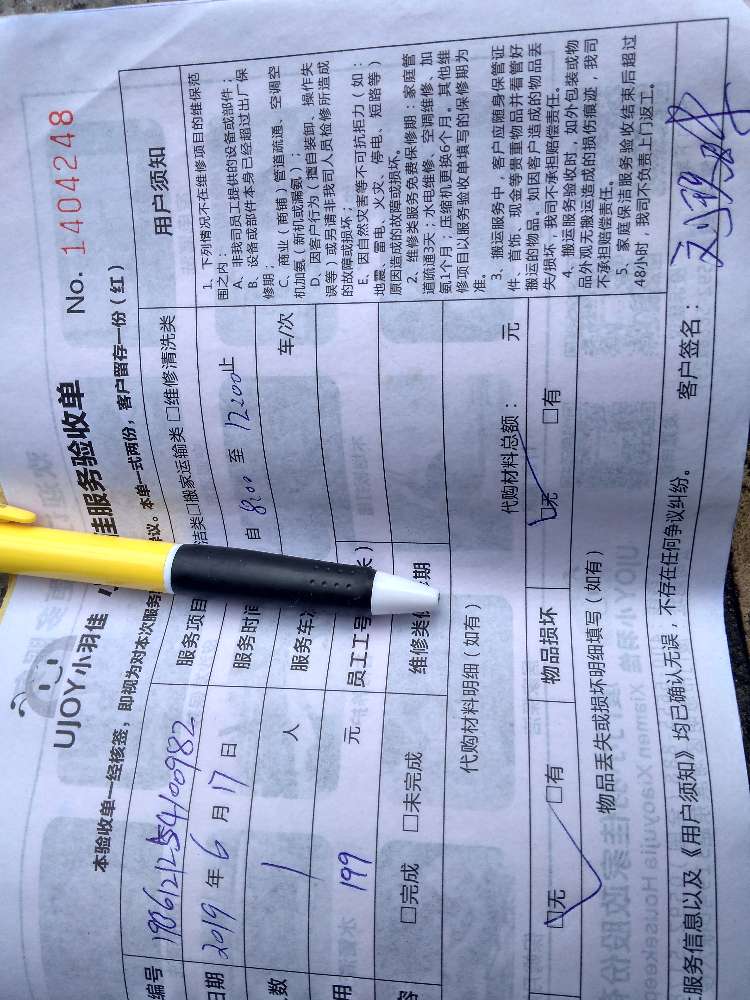 UJOY小羽佳
佳服务验收单
No. 1404248
本验收单一经核签，即视为对本次服务
议。本单一式两份，客户留存一份（红）
编号
服务项目
洁类□搬家运输类 □维修清洗类
日期 2019 年 6 月 17 日
服务时间
自 8:00 至 12:00止
数 1 人
服务车次
车/次
用 199 元
员工工号
□完成 □未完成
维修类
期
代购材料明细（如有）
代购材料总额： 元
□无 □有
物品损坏
□无 □有
物品丢失或损坏明细填写（如有）
服务信息以及《用户须知》均已确认无误，不存在任何争议纠纷。
客户签名：
用户须知
1、下列情况不在维修项目的维保范
围之内：
A、非我司员工提供的设备或部件；
B、设备或部件本身已经超过出厂保
修期；
C、商业（商铺）管道疏通、空调空
机加氨（新机或漏氨）；
D、因客户行为（擅自装卸、操作失
误等）或另请非我司人员检修所造成
的故障或损坏；
E、因自然灾害等不可抗拒力（如：
地震、雷电、火灾、停电、短路等）
原因造成的故障或损坏。
2、维修类服务免费保修期：家庭管
道疏通3天；水电维修、空调维修、加
氨1个月；压缩机更换6个月。其他维
修项目以服务验收单填写的保修期为
准。
3、搬运服务中，客户应随身保管证
件、首饰、现金等贵重物品并看管好
搬运的物品。如因客户造成的物品丢
失/损坏，我司不承担赔偿责任。
4、搬运服务验收时，如外包装或物
品外观无搬运造成的损伤痕迹，我司
不承担赔偿责任。
5、家庭保洁服务验收结束后超过
48小时，我司不负责上门返工。